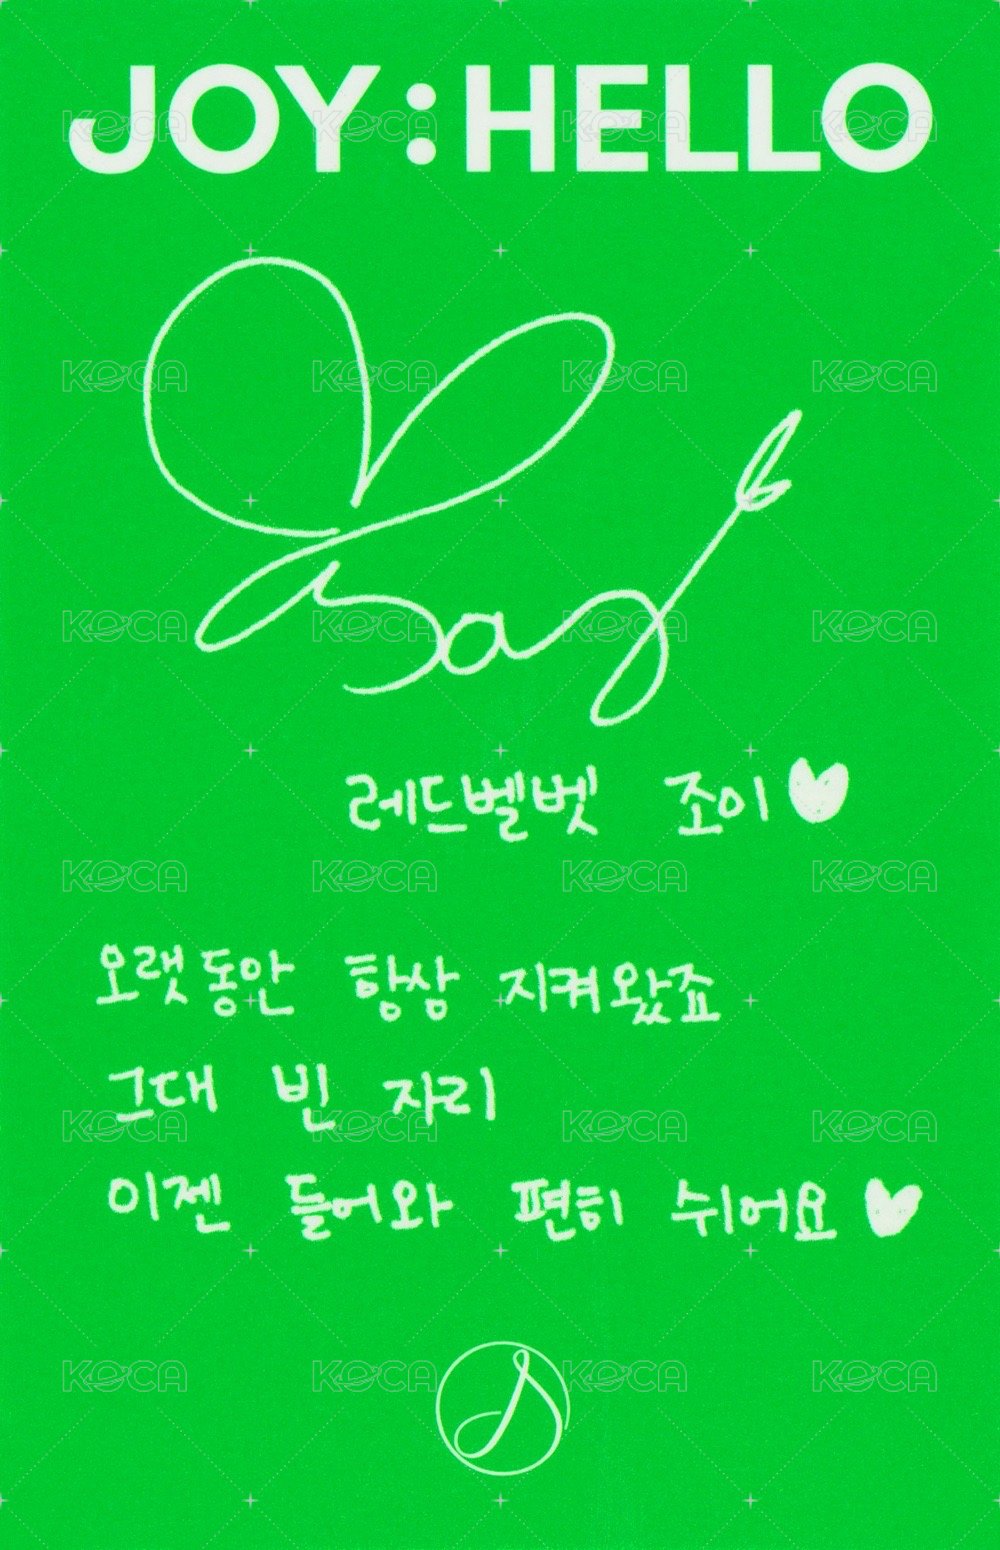 JOY:HELLO
레드벨벳 조이♥
오랫동안 항상 지켜왔죠
그대 빈 자리
이젠 들어와 편히 쉬어요♥
KOCA